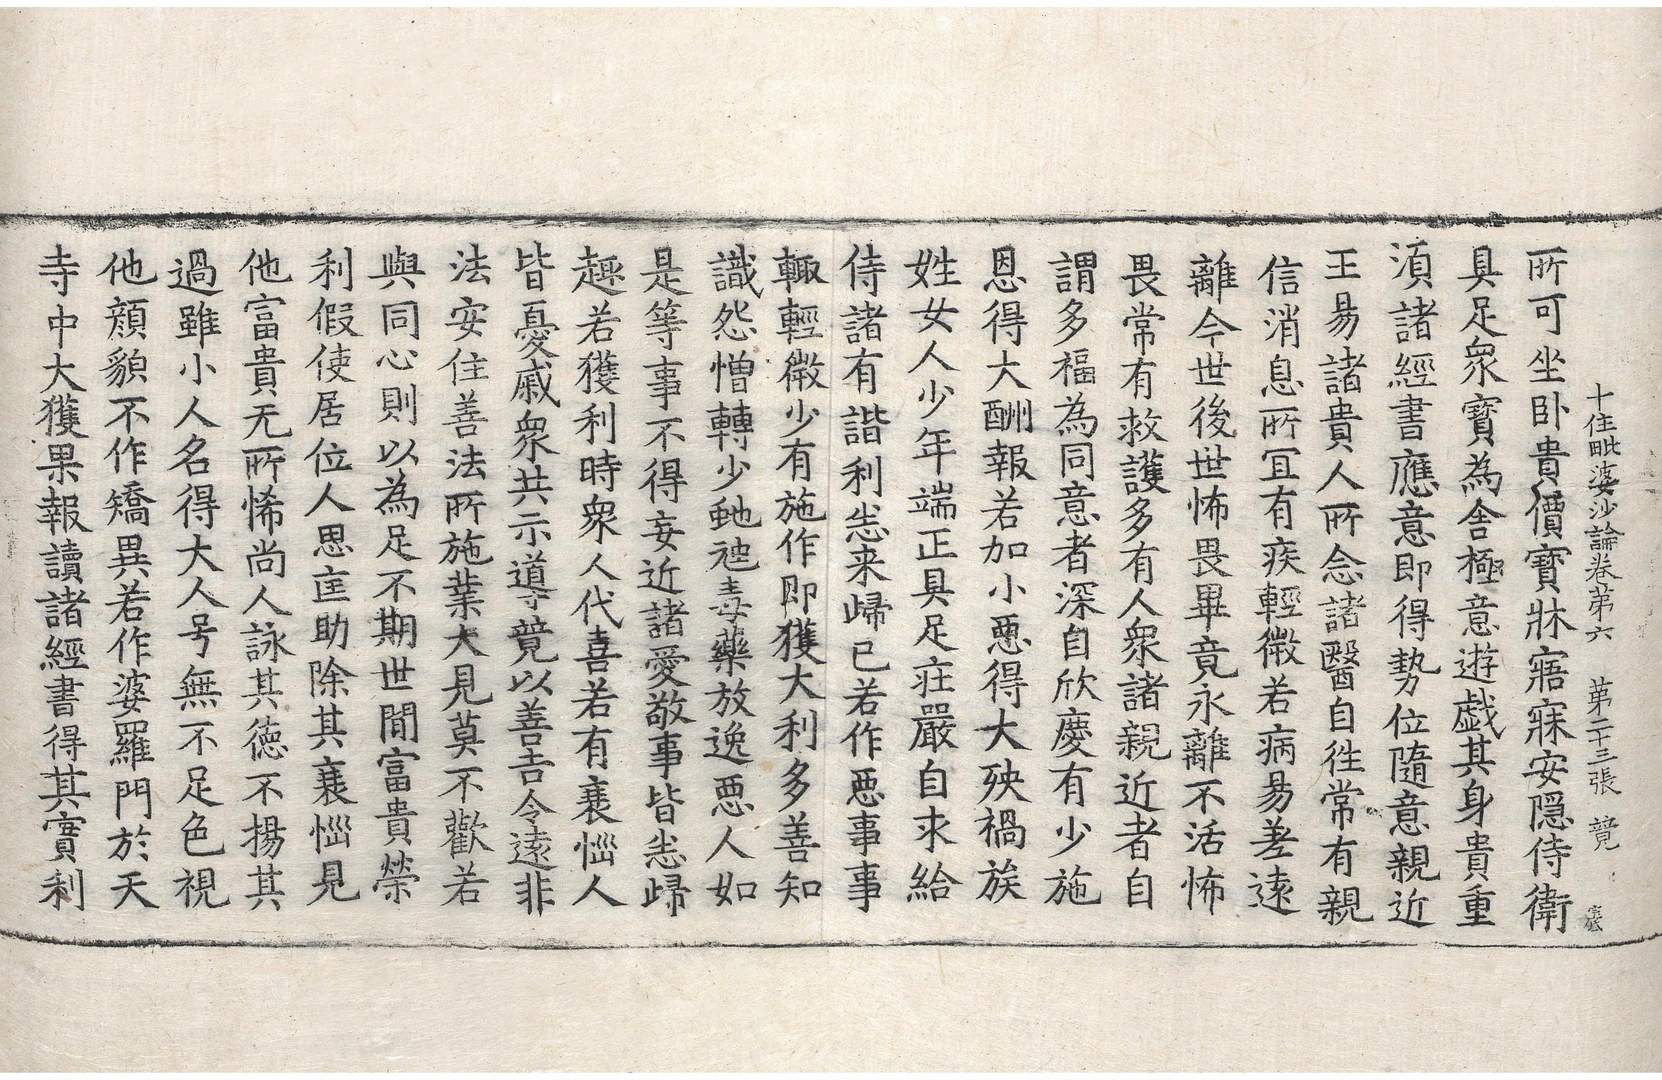 十住毗婆沙論卷第六　第二十三張　競
所可坐卧貴價寶牀寤寐安隱侍衛
具足衆寶為舍極意遊戲其身貴重
湏諸經書應意即得勢位隨意親近
王昜諸貴人所念諸醫自往常有親
信消息所冝有疾輕微若病昜差遠
離今世後世怖畏畢竟永離不活怖
畏常有救護多有人衆諸親近者自
謂多福為同意者深自欣慶有少施
恩得大酬報若加小惡得大殃禍族
姓女人少年端正具足疘嚴自求給
侍諸有諧利恙来歸已若作惡事事
輙輕微少有施作即獲大利多善知
識怨憎轉少虵虺毒藥放逸惡人如
是等事不得妄近諸愛敬事皆恙歸
趣若獲利時衆人代喜若有衰惱人
皆憂慼衆共示導競以善吉令遠非
法安住善法所施業大見莫不歡若
與同心則以為足不期世間富貴榮
利假使居位人思匡助除其衰惱見
他富貴无所悕尚人詠其德不揚其
過雖小人名得大人号無不足色視
他顔貌不作矯異若作婆羅門於天
寺中大獲果報讀諸經書得其實利